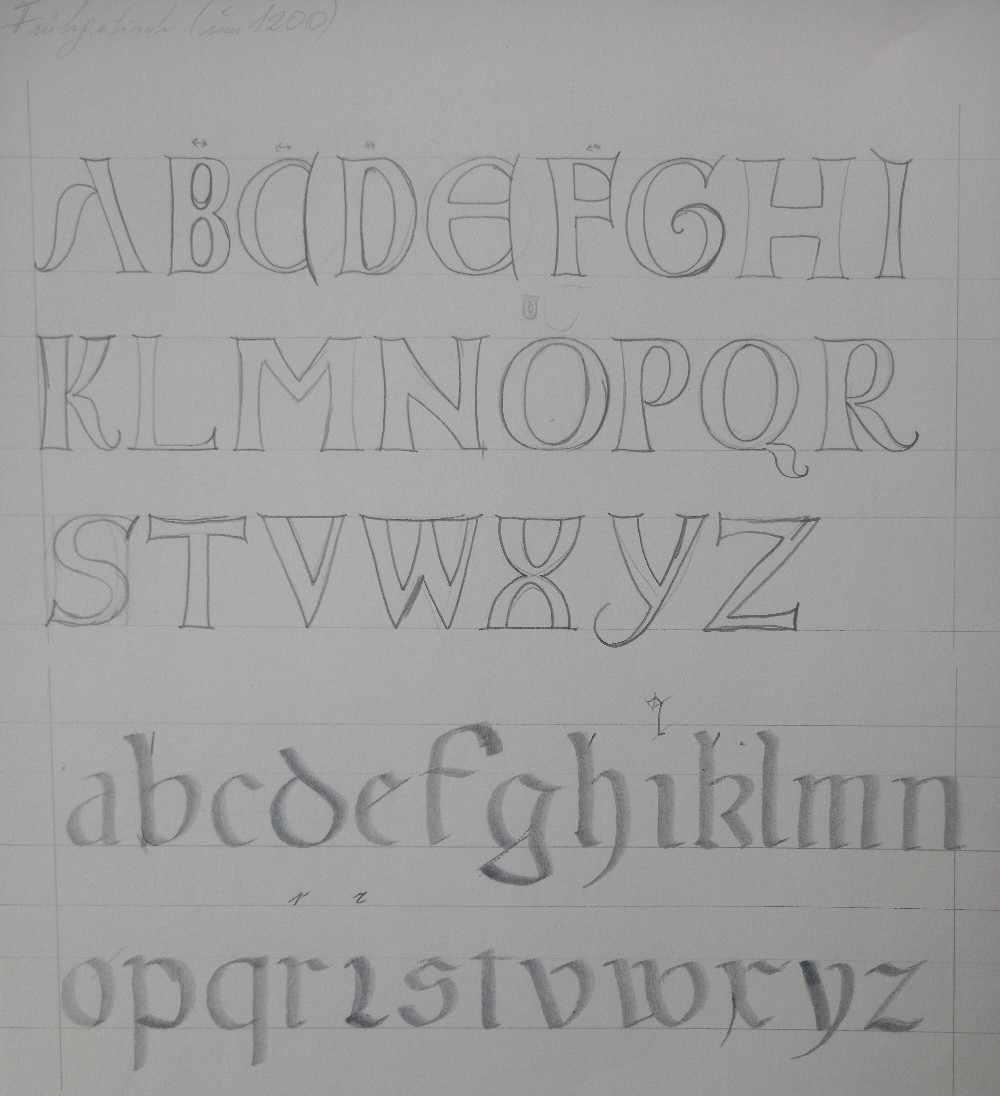 Frühgotisch (um 1200)
ABCDEFGHI
KLMNOPQR
STVWXYZ
abcdefghiklmn
r ꝛ
opqrꝛstvwxyz